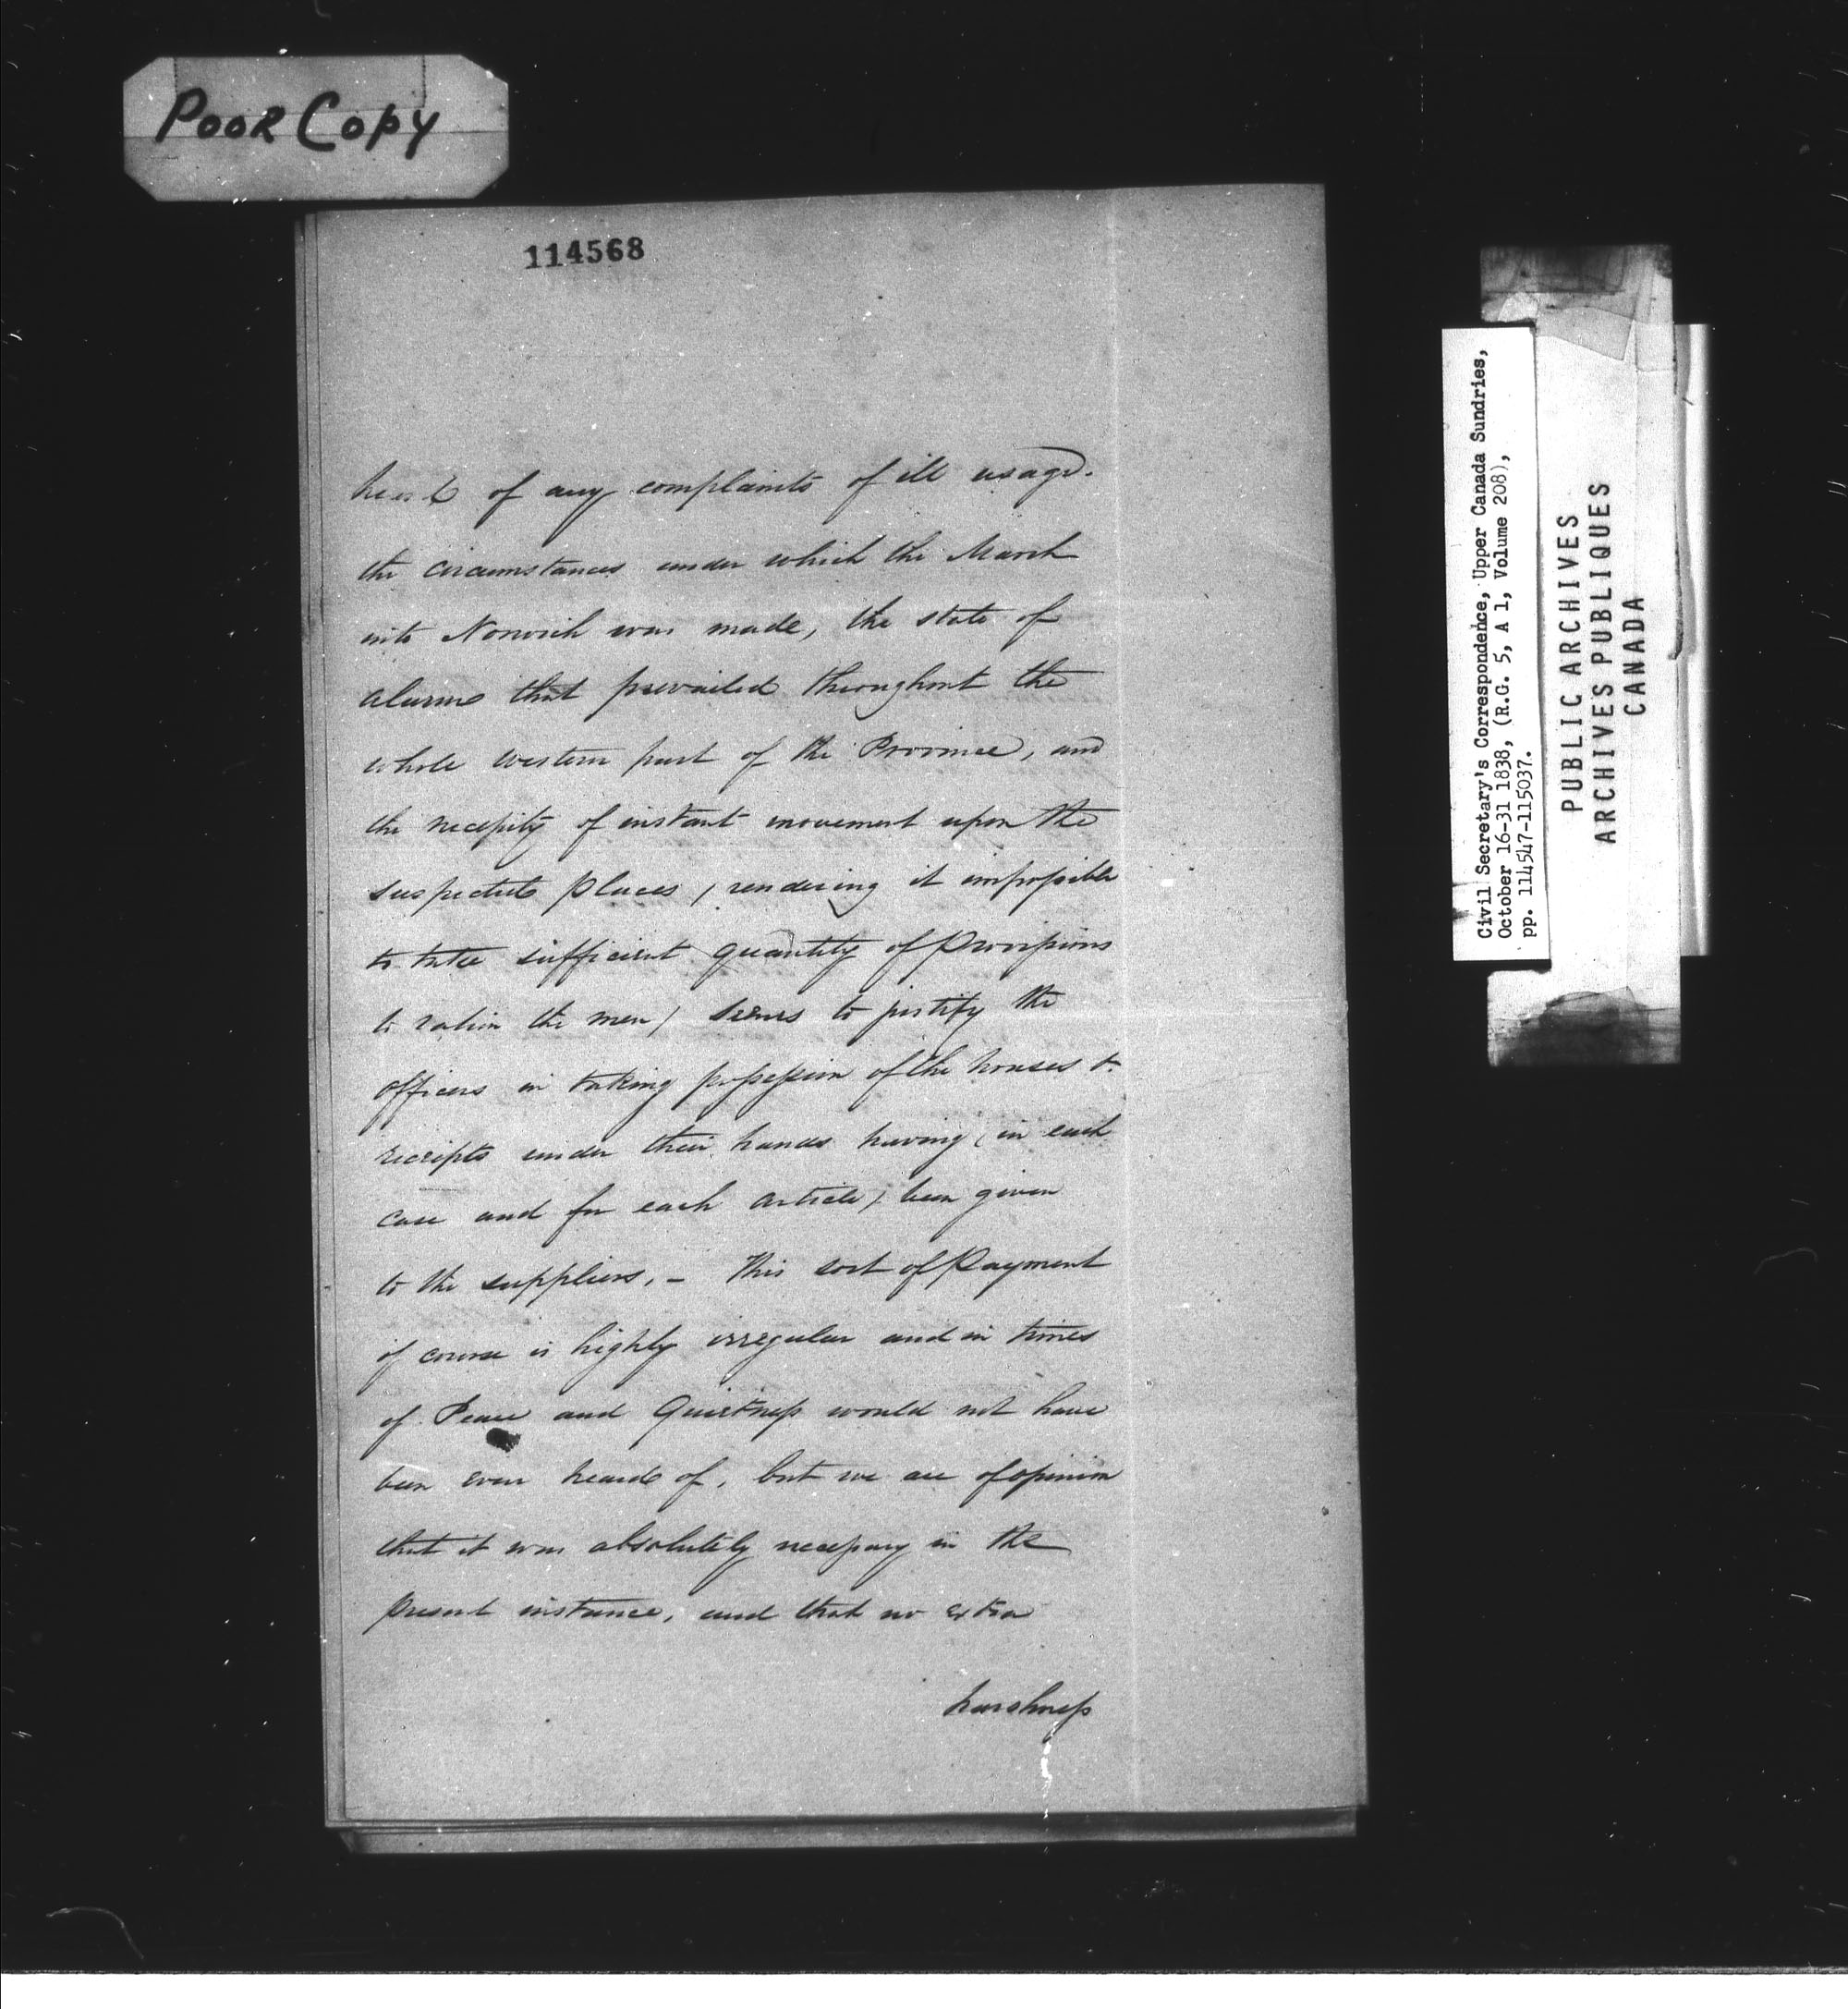 Poor Copy
114568
heard of any complaints of ill usage.
the circumstances under which the March
into Norwich was made, the state of
alarm that prevailed throughout the
whole western part of the Province, and
the necessity of instant movement upon the
suspected places / rendering it impossible
to take sufficient quantity of Provisions
to ration the men / seems to justify the
officers in taking possession of the houses &
receipts under their hands having (in each
case and for each article) been given
to the suppliers. - This sort of Payment
of course is highly irregular and in times
of Peace and Quietness would not have
been even heard of, but we are of opinion
that it was absolutely necessary in the
present instance, and that no extra
harshness
Civil Secretary's Correspondence, Upper Canada Sundries,
October 16-31 1838, (R.G. 5, A 1, Volume 208),
pp. 114547-115037.
PUBLIC ARCHIVES
ARCHIVES PUBLIQUES
CANADA